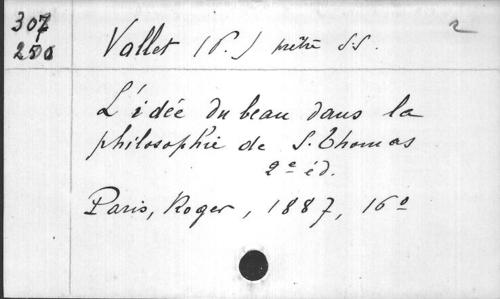 307
250
Vallet (P.) prêtre S.S.
2
L'idée du beau dans la
philosophie de S. Thomas
2e éd.
Paris, Roger, 1887, 16o